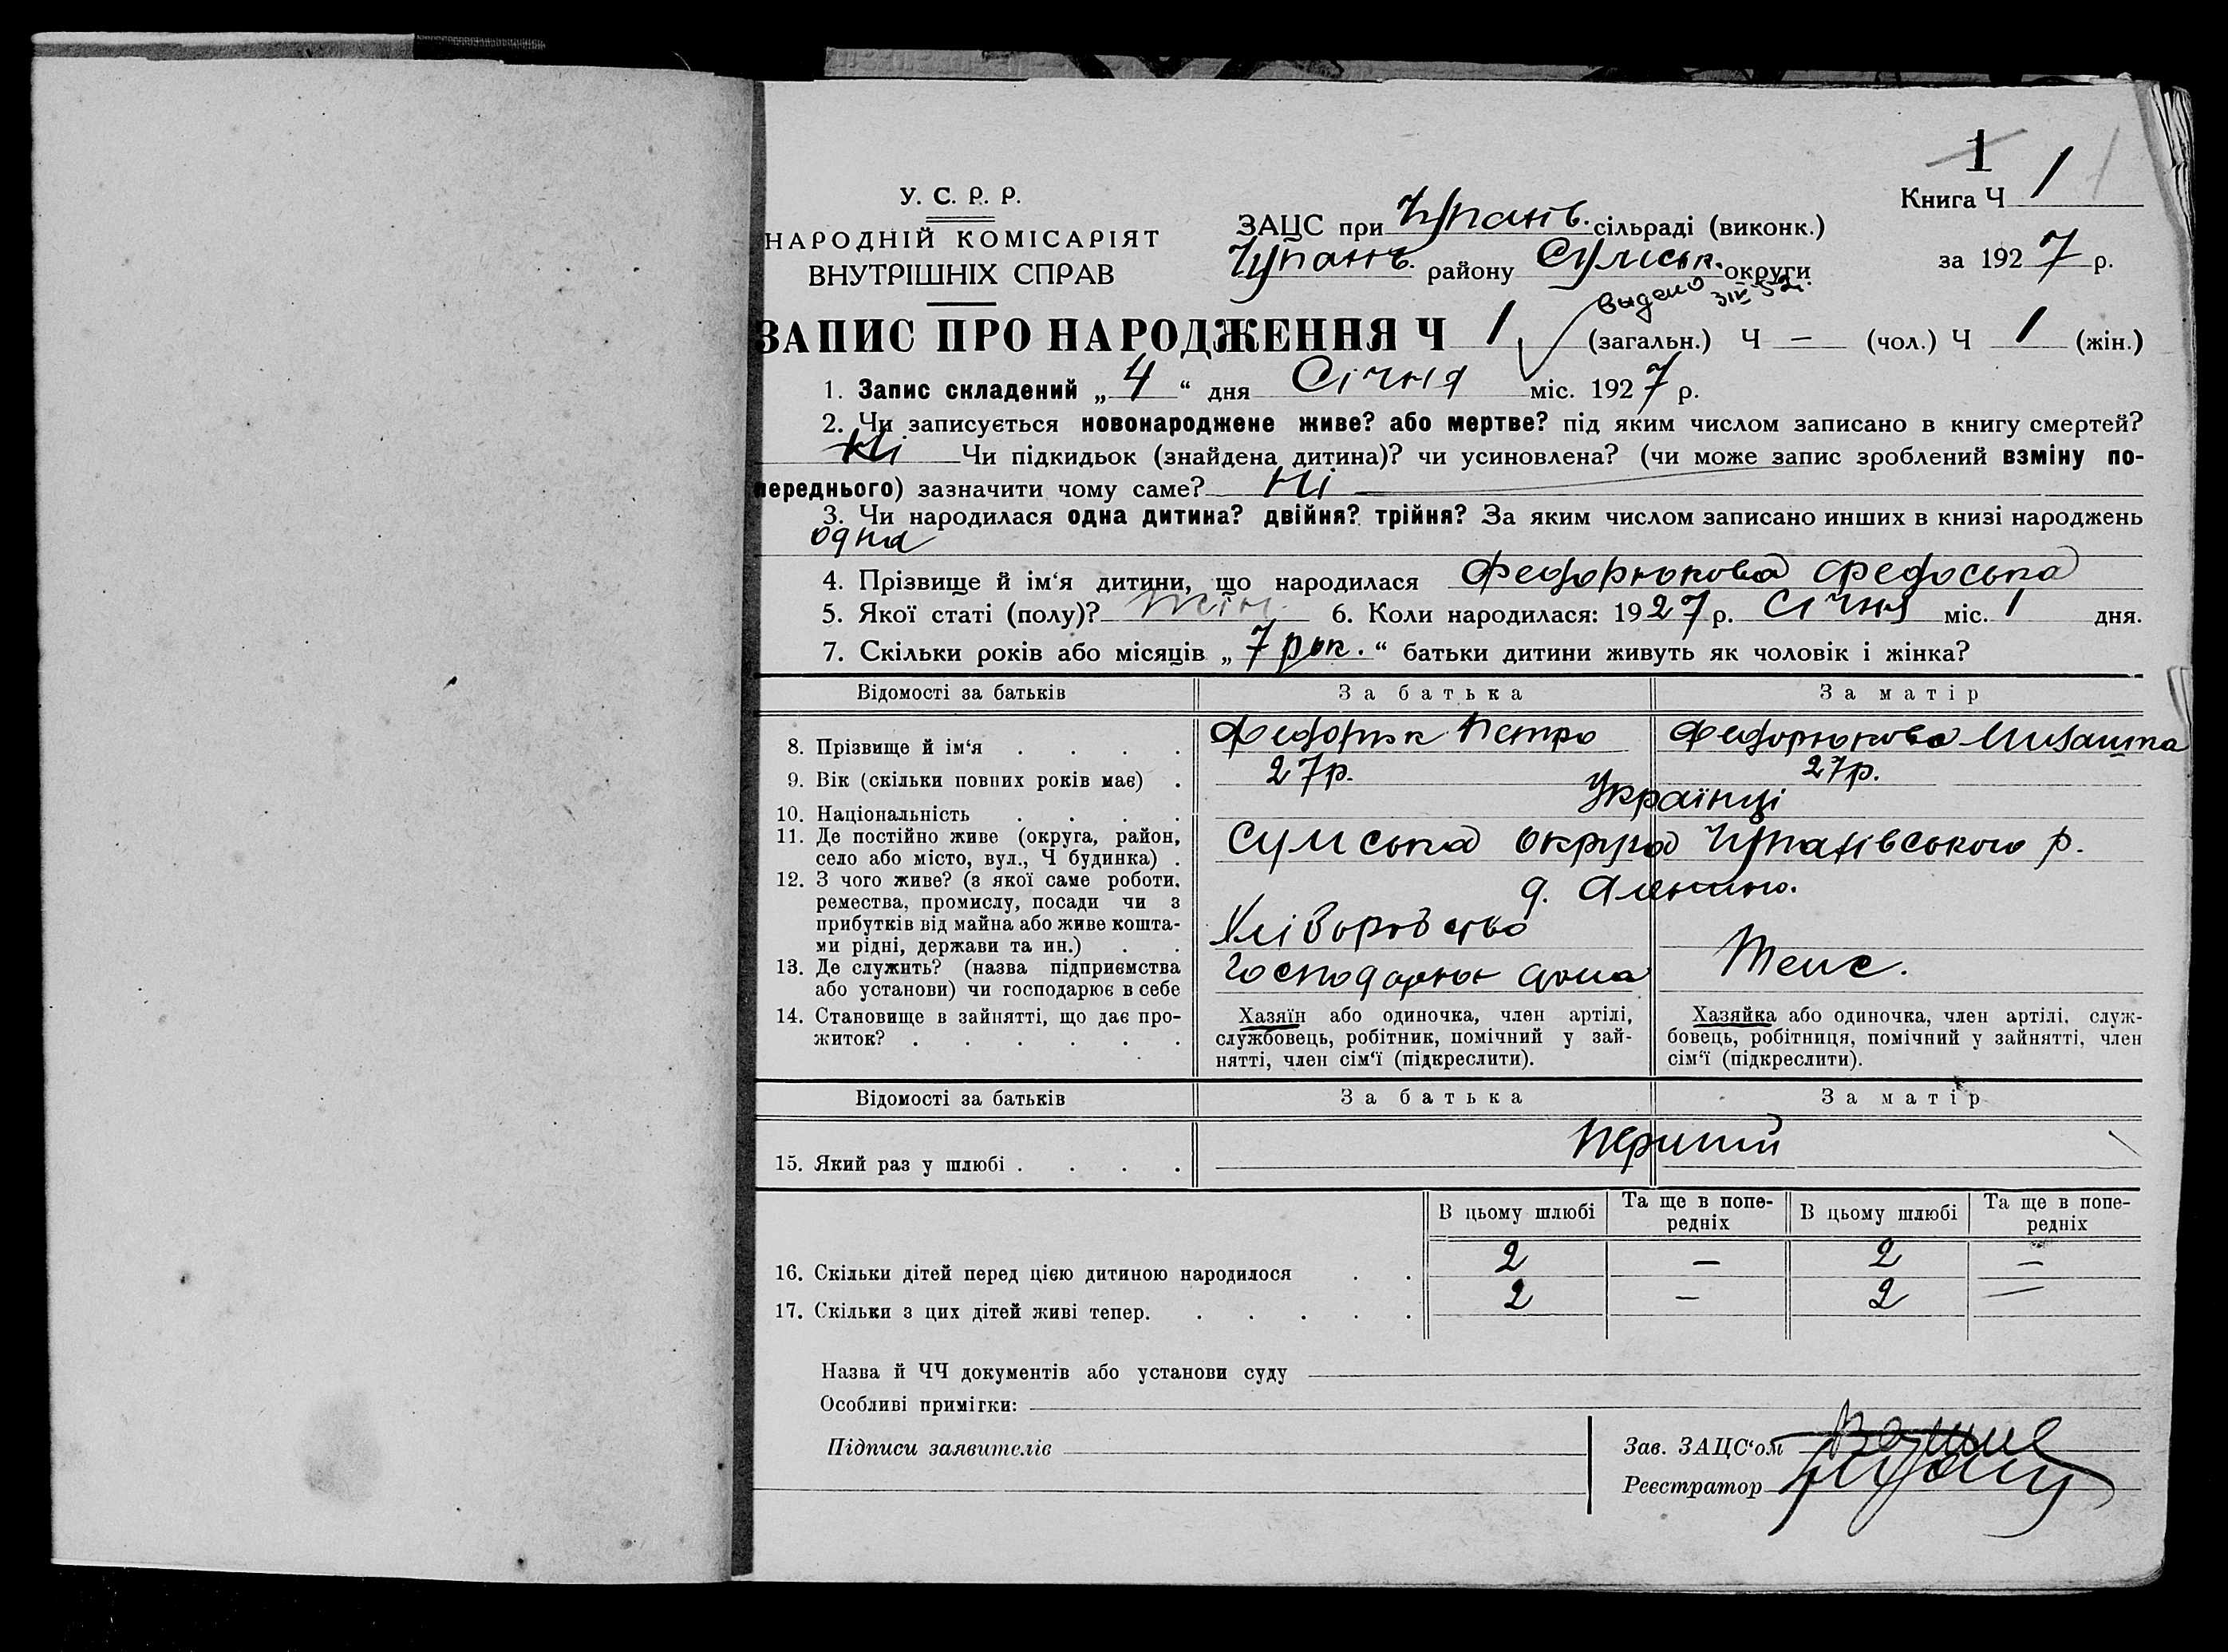 1
Книга Ч 1
У. С. Р. Р.
НАРОДНІЙ КОМІСАРІЯТ
ВНУТРІШНІХ СПРАВ
ЗАЦС при Чупахів. сільраді (виконк.)
Чупахів. району Сумськ. округи
за 1927 р.
выдано
ЗАПИС ПРО НАРОДЖЕННЯ Ч 1 (загальн.) Ч — (чол.) Ч 1 (жін.)
1. Запис складений „ 4 “ дня Січня міс. 1927 р.
2. Чи записується новонароджене живе? або мертве? під яким числом записано в книгу смертей?
Ні Чи підкидьок (знайдена дитина)? чи усиновлена? (чи може запис зроблений взміну по-
переднього) зазначити чому саме? Ні
3. Чи народилася одна дитина? двійня? трійня? За яким числом записано инших в книзі народжень
одна
4. Прізвище й ім‘я дитини, що народилася Федорюкова Федоська
5. Якої статі (полу)? жін. 6. Коли народилася: 1927 р. Січня міс. 1 дня.
7. Скільки років або місяців „ 7 рок. “ батьки дитини живуть як чоловік і жінка?
Відомості за батьків За батька За матір
8. Прізвище й ім‘я . . . . Федорюк Петро Федорюкова
9. Вік (скільки повних років має) . 27р. 27р.
10. Національність . . . . Українці
11. Де постійно живе (округа, район,
село або місто, вул., Ч будинка) . Сумська округа Чупахівського р.
12. З чого живе? (з якої саме роботи,
ремества, промислу, посади чи з
прибутків від майна або живе кошта-
ми рідні, держави та ин.) . . Хліборобство
13. Де служить? (назва підприємства
або установи) чи господарює в себе Господарює дома Теж.
14. Становище в зайнятті, що дає про-
житок? . . . . . .
Хазяїн або одиночка, член артілі,
службовець, робітник, помічний у зай-
нятті, член сім‘ї (підкреслити).
Хазяйка або одиночка, член артілі, служ-
бовець, робітниця, помічний у зайнятті, член
сім‘ї (підкреслити).
Відомості за батьків За батька За матір
15. Який раз у шлюбі . . . . Перший
В цьому шлюбі Та ще в попе-
редніх В цьому шлюбі Та ще в попе-
редніх
16. Скільки дітей перед цією дитиною народилося . . 2 — 2 —
17. Скільки з цих дітей живі тепер. . . . . . 2 — 2 —
Назва й ЧЧ документів або установи суду
Особливі примітки:
Підписи заявителів
Зав. ЗАЦС‘ом
Реєстратор